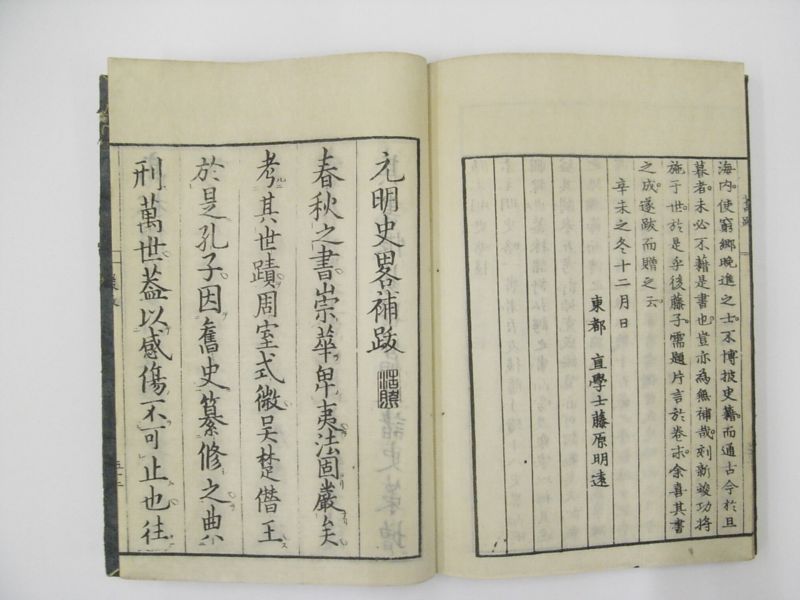 海内使窮鄉晚進之士不博披史籍而通古今於旦
暮者未必不藉是書也豈亦為無補哉刻新竣功將
施于世於是乎後藤子需題片言於卷末余喜其書
之成遂跋而贈之云
辛未之冬十二月日
東都 直學士藤原明遠
元明史畧補跋
春秋之書崇華卑夷法固嚴矣
考其世蹟周室式微吴楚僭王
於是孔子因舊史纂修之典
刑萬世蓋以感傷不可止也往